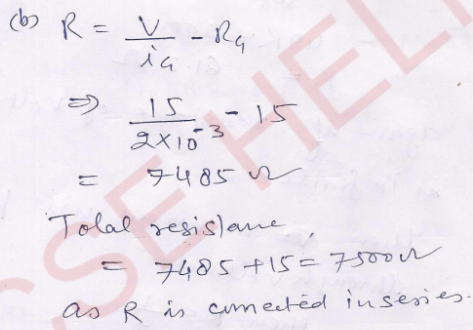 (b) R = V/iG - RG
⇒ 15/2×10^-3 - 15
= 7485 Ω
Total resistance,
= 7485 + 15 = 7500 Ω
as R is connected in series.